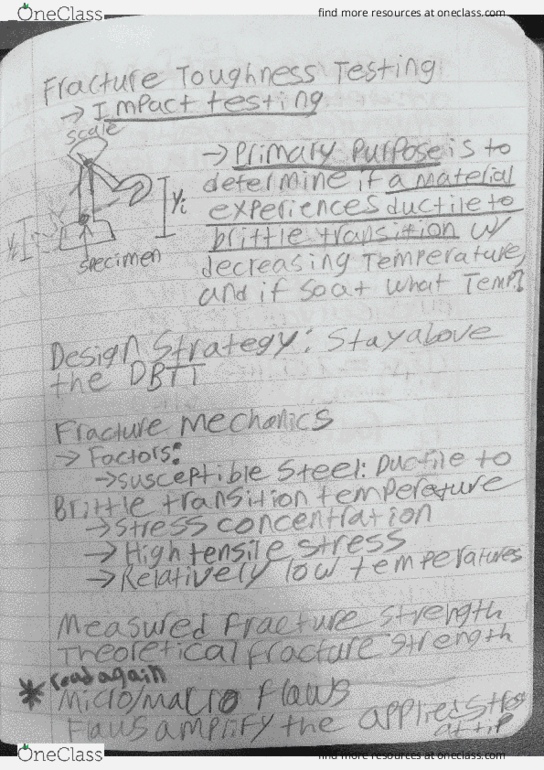 OneClass
find more resources at oneclass.com
Fracture Toughness Testing
→ Impact testing
scale
→ Primary Purpose is to
determine if a material
yi
experiences ductile to
brittle transition w/
specimen
decreasing Temperature,
and if so at what Temp?
Design Strategy: Stay above
the DBTT
Fracture Mechanics
→ Factors:
→ susceptible Steel: Ductile to
Brittle transition temperature
→ Stress concentration
→ High tensile stress
→ Relatively low temperatures
Measured fracture strength
Theoretical fracture strength
read again
* Micro/macro flaws
Flaws amplify the applied stress
at tip
OneClass
find more resources at oneclass.com